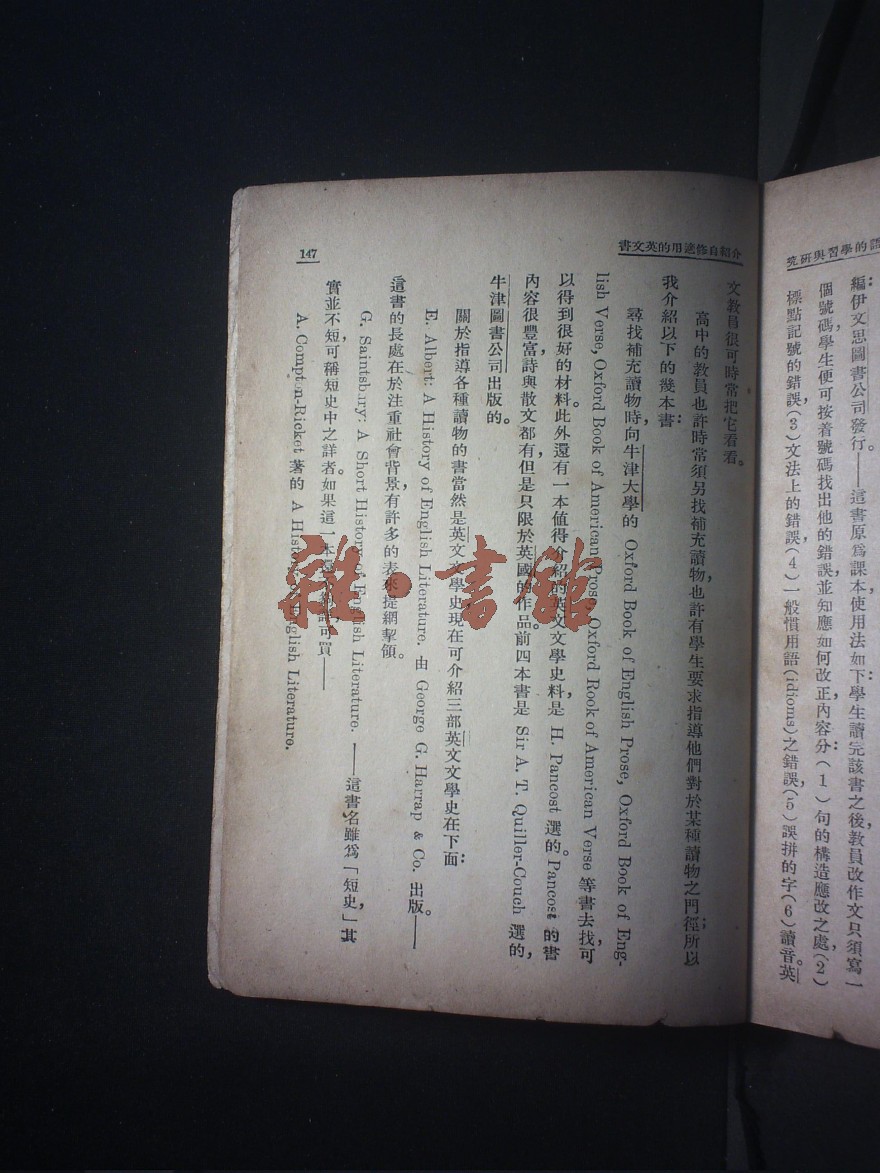 語的學習與研究
編伊文思圖書公司發行。——這書原爲課本，使用法如下：學生讀完該書之後，教員改作文只須寫一
個號碼，學生便可按着號碼找出他的錯誤，並知應如何改正。內容分：(1)句的構造應改之處(2)
標點記號的錯誤，(3)文法上的錯誤，(4)一般慣用語(idioms)之錯誤，(5)誤拼的字(6)讀音。英
介紹自修適用的英文書
文教員很可時常把它看看。
高中的教員也許時常須另找補充讀物，也許有學生要求指導他們對於某種讀物之門徑；所以
我介紹以下的幾本書：
尋找補充讀物時，向牛津大學的 Oxford Book of English Prose, Oxford Book of Eng-
lish Verse, Oxford Book of American Prose, Oxford Book of American Verse 等書去找，可
以得到很好的材料。此外還有一本值得介紹的英文文學史料，是 H. Pancost 選的。Pancost 的書
內容很豐富，詩與散文都有，但是只限於英國的作品。前四本書是 Sir A. T. Quiller-Couch 選的，
牛津圖書公司出版的。
關於指導各種讀物的書，當然是英文文學史，現在可介紹三部英文文學史在下面：
E. Albert: A History of English Literature. 由 George G. Harrap & Co. 出版。——
這書的長處在於注重社會背景，有許多的表來提綱挈領。
G. Saintsbury: A Short History of English Literature. ——這書名雖爲「短史」，其
實並不短，可稱短史中之詳者。如果這一本 可買——
A. Compton-Ricket 著的 A History of English Literature.
147
雜·書館